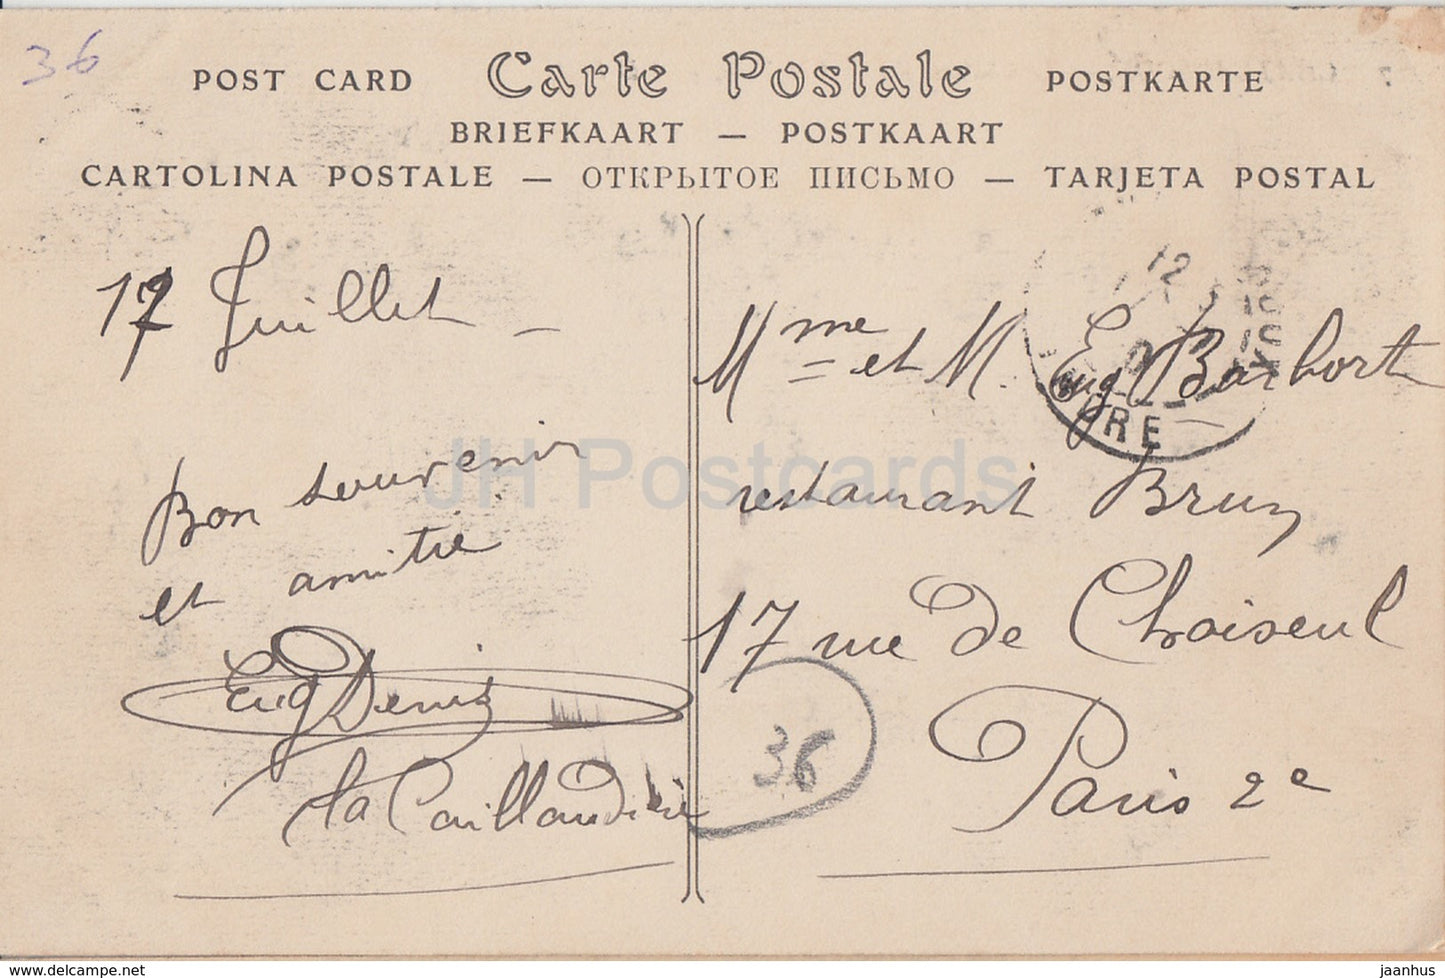 36
POST CARD Carte Postale POSTKARTE
BRIEFKAART — POSTKAART
CARTOLINA POSTALE — ОТКРЫТОЕ ПИСЬМО — TARJETA POSTAL
17 Juillet —
Bon souvenir
et amitié
Eug Denis
la Caillaudière
12
DRE
Mme et M. Eug Barbort
restaurant Brun
17 rue de Choiseul
Paris 2e
36
JH Postcards
www.delcampe.net
jaanhus